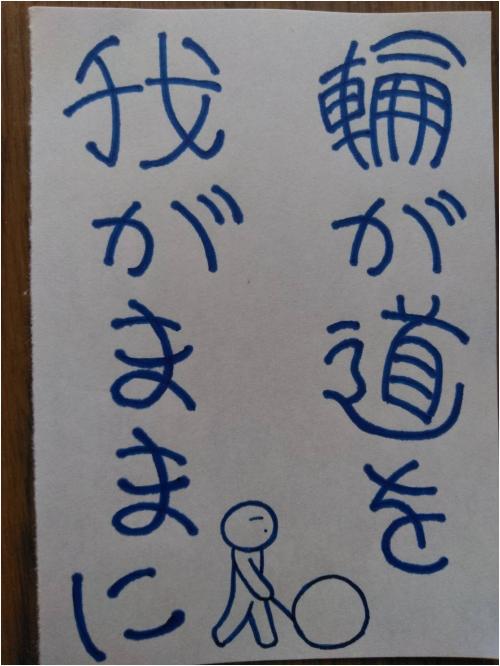 輪が道を
我がままに